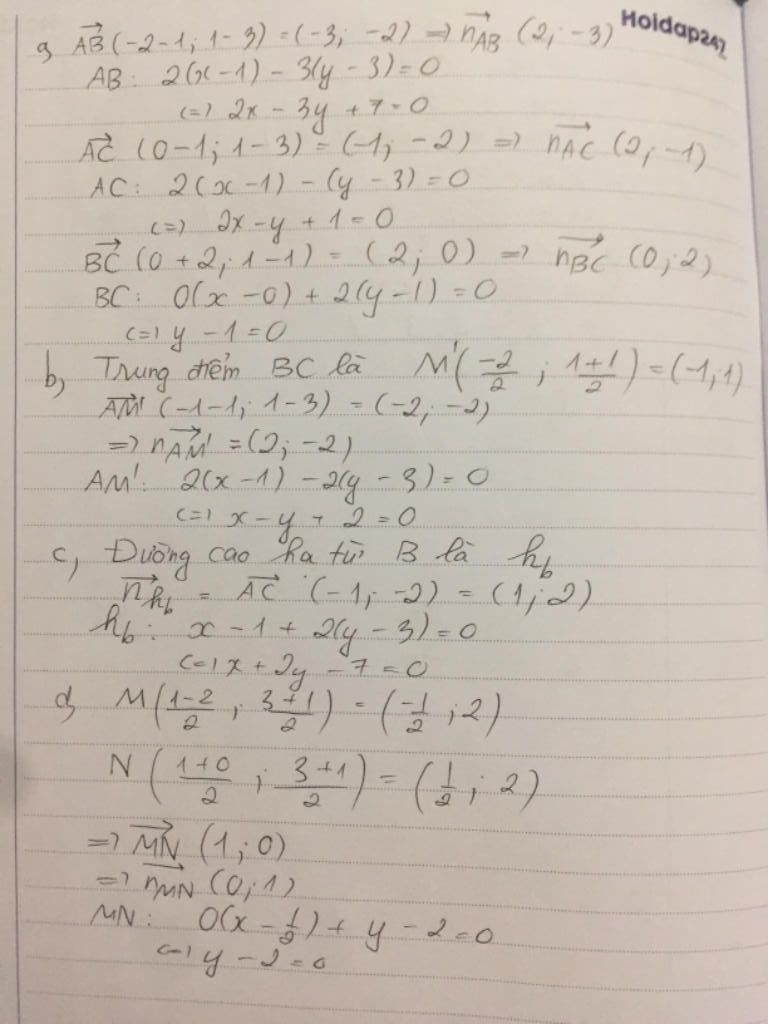 Hoidap247
a, AB→ (-2-1; 1-3) = (-3; -2) => n_AB→ (2; -3)
AB: 2(x-1) - 3(y-3) = 0
<=> 2x - 3y + 7 = 0
AC→ (0-1; 1-3) = (-1; -2) => n_AC→ (2; -1)
AC: 2(x-1) - (y-3) = 0
<=> 2x - y + 1 = 0
BC→ (0+2; 1-1) = (2; 0) => n_BC→ (0; 2)
BC: 0(x-0) + 2(y-1) = 0
<=> y - 1 = 0
b, Trung điểm BC là M'(-2/2; 1+1/2) = (-1; 1)
AM'→ (-1-1; 1-3) = (-2; -2)
=> n_AM'→ = (2; -2)
AM': 2(x-1) - 2(y-3) = 0
<=> x - y + 2 = 0
c, Đường cao hạ từ B là h_b
n_hb→ = AC→ (-1; -2) = (1; 2)
h_b: x - 1 + 2(y-3) = 0
<=> x + 2y - 7 = 0
d, M(1-2/2; 3+1/2) = (-1/2; 2)
N(1+0/2; 3+1/2) = (1/2; 2)
=> MN→ (1; 0)
=> n_MN→ (0; 1)
MN: 0(x - 1/2) + y - 2 = 0
<=> y - 2 = 0